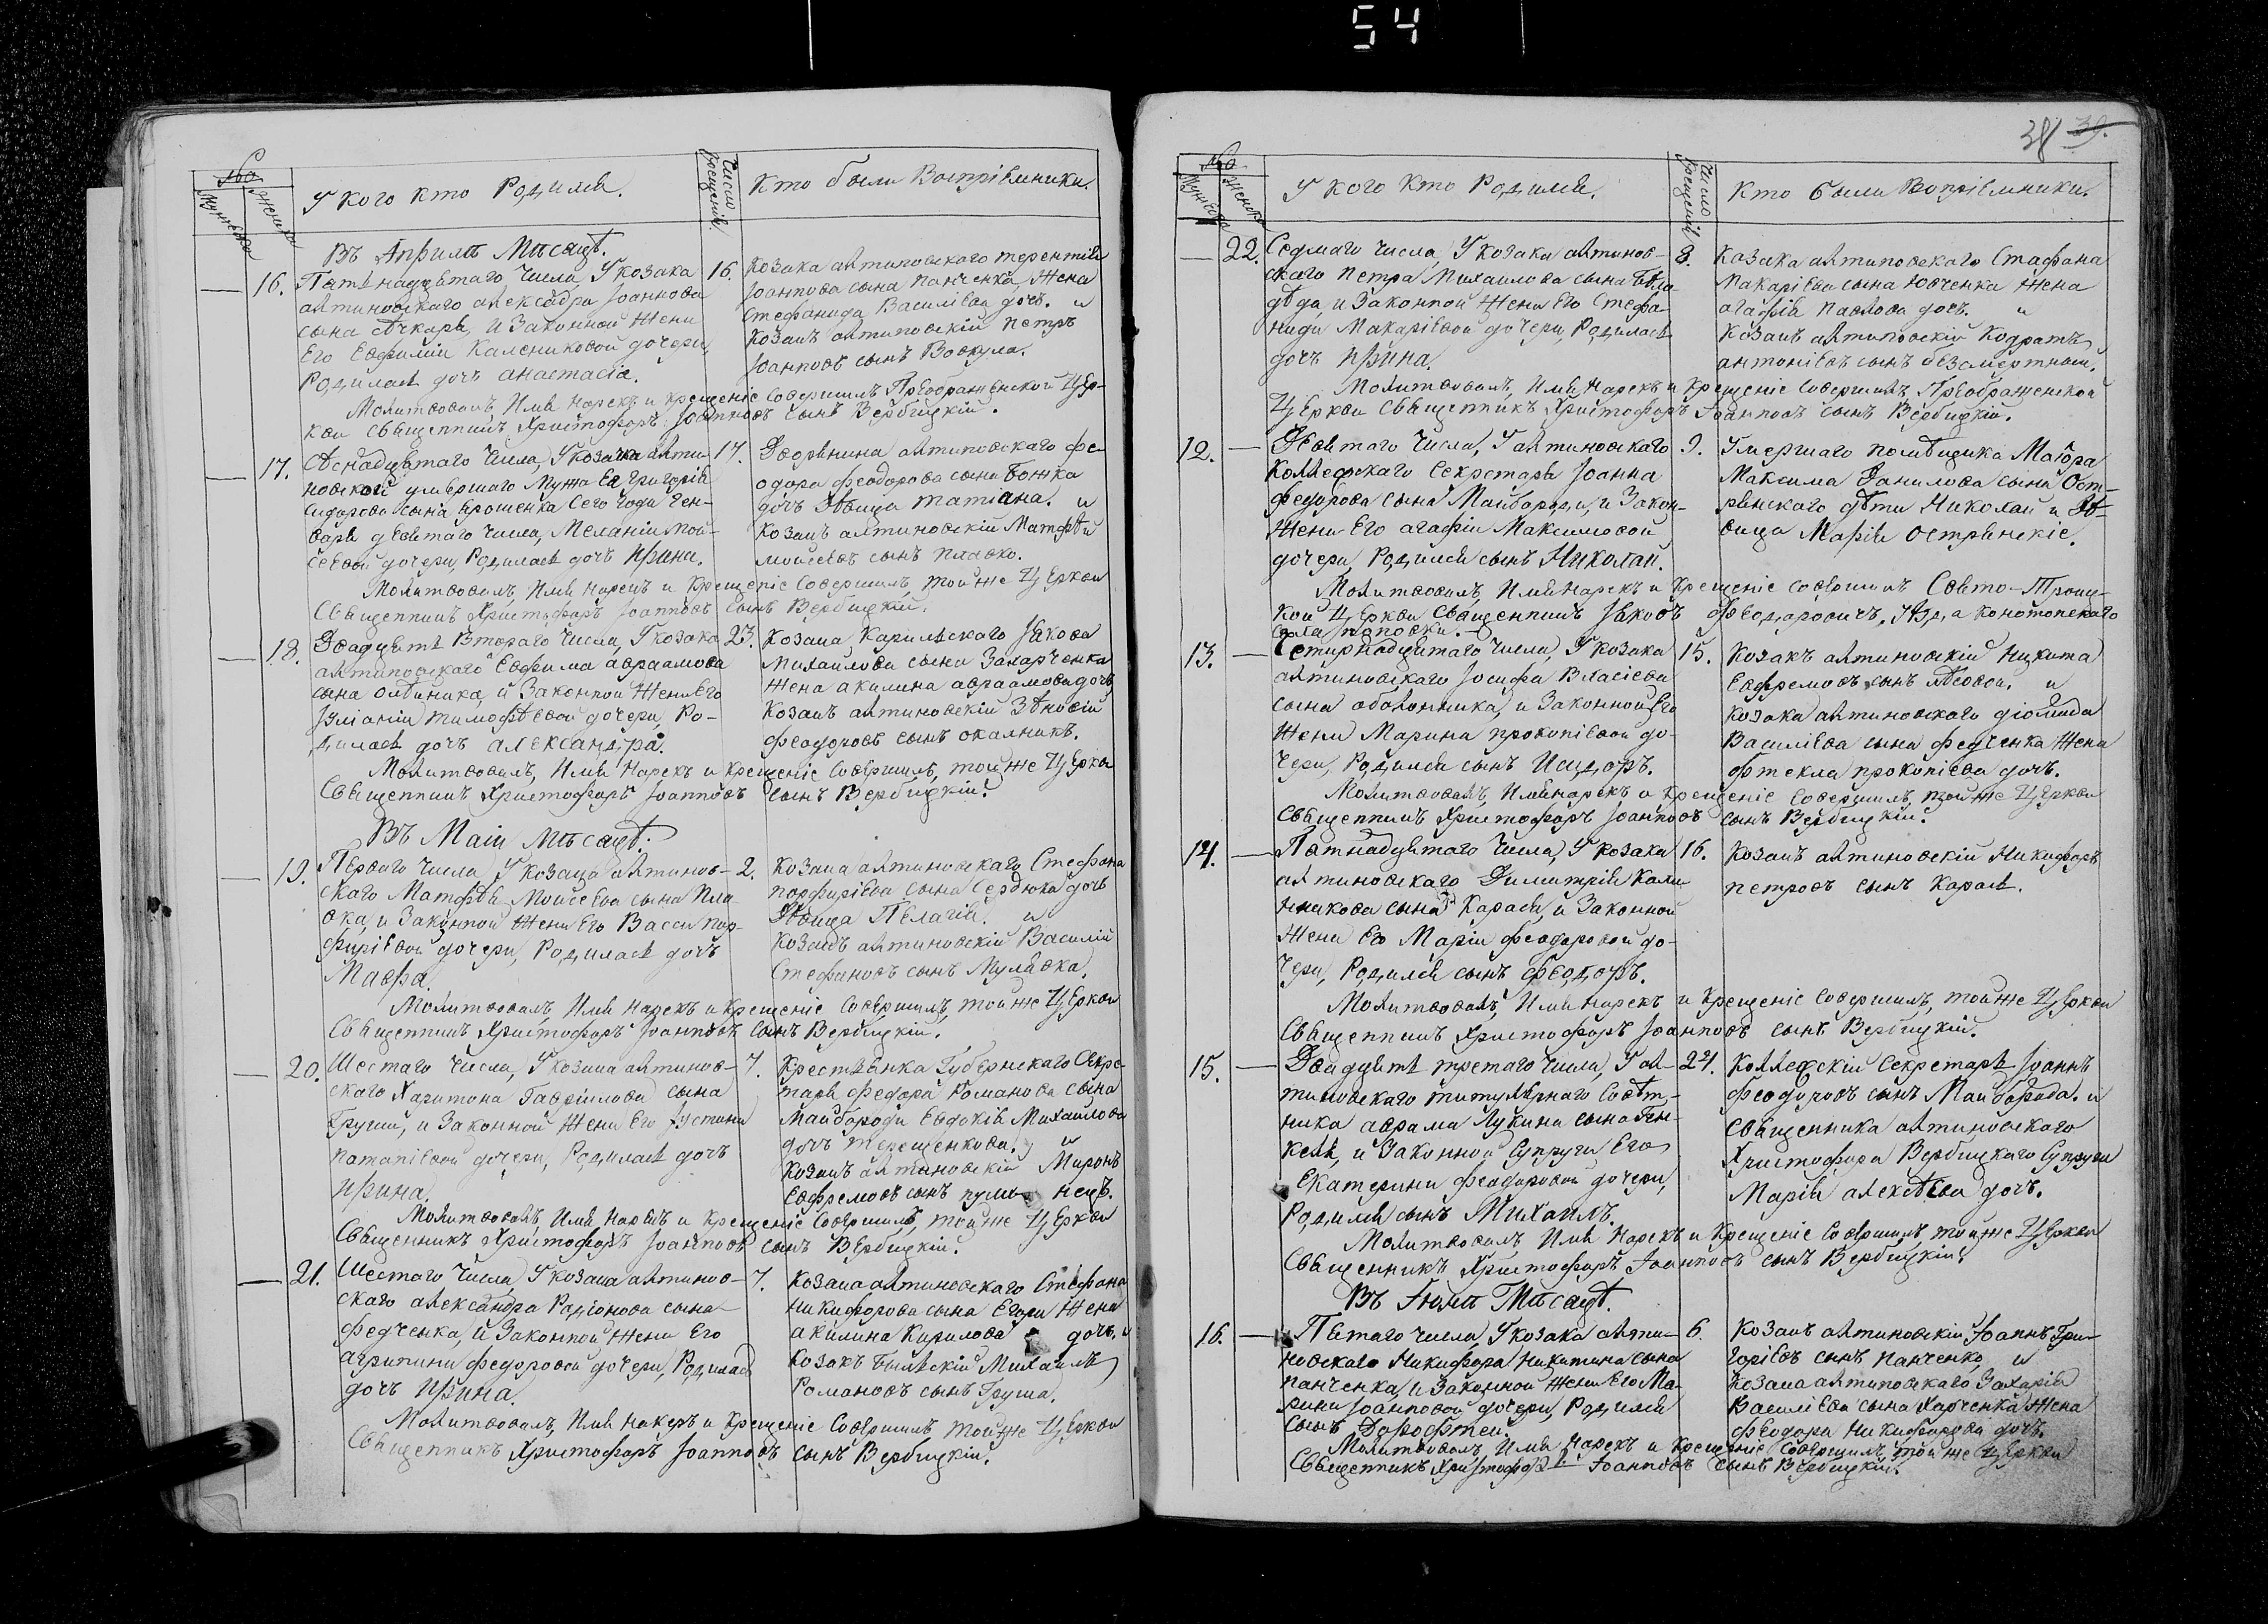 54
38 39.
№
Мужеска
Женска
У кого кто Родился.
Число Крещенія.
Кто были Воспріемники.
Въ Априлѣ Мѣсяцѣ.
— 16. Пятьнадцятаго Числа, У козака
алтиновскаго александра Іоаннова
сына сѣчкаря, и Законной Жени
Его Евфиміи Калениковой дочери,
Родилась дочь анастасіа.
16. Козака алтиновскаго терентія
Іоаннова сына Панченка, Жена
Стефанида Василіева дочь. и
Козакъ алтиновскій петръ
Іоанновъ сынъ Вовкула.
Молитвовалъ, Имя Нарекъ и Крещеніе Совершилъ Преображенской Цер-
кви Священникъ Христофоръ Іоанновъ Сынъ Вербицкій.
— 17. Сѣмнадцятаго Числа, У козачки алти-
новской умершаго Мужа Ея Григорія
Сидорова Сына Ярошенка Сего Года Ген-
варя девятаго числа, Меланіи Мой-
сеевой дочери, Родилась дочь Ирина.
17. Дворянина алтиновскаго Фе-
одора Феодорова сына Божка
дочь Дѣвица татіана. и
Козакъ алтиновскій Матфѣй
мойсеевъ сынъ Плавко.
Молитвовалъ, Имя Нарекъ и Крещеніе Совершилъ, той же Церкви
Священникъ Христофоръ Іоанновъ Сынъ Вербицкій.
— 18. Двадцять Втораго Числа, У козака
алтиновскаго Евфима авраамова
сына олѣйника, и Законной Жени Его
Іуліаніи тимофѣевой дочери, Ро-
дилась дочь александра.
23. Козака Карильскаго Іякова
Михаилова сына Захарченка
Жена акилина авраамова дочь
Козакъ алтиновскій Зѣновій
Феодоровъ сынъ окалникъ.
Молитвовалъ, Имя Нарекъ и Крещеніе Совершилъ, той же Церкви
Священникъ Христофоръ Іоанновъ Сынъ Вербицкій.
Въ Маіи Мѣсяцѣ.
— 19. Перваго Числа, У козака алтинов-
скаго Матфѣя Мойсеева сына Пла-
вка, и Законной Жени Его Васси пор-
фиріевой дочери, Родилась дочь
Мавфа.
2. Козака алтиновскаго Стефана
порфиріева сына Сердюка дочь
Дѣвица Пелагія. и
Козакъ алтиновскій Василій
Стефановъ сынъ Мулявка.
Молитвовалъ, Имя Нарекъ и Крещеніе Совершилъ, той же Церкви
Священникъ Христофоръ Іоанновъ Сынъ Вербицкій.
— 20. Шестаго Числа, У козака алтинов-
скаго Харитона Гавріилова сына
Груши, и Законной Жени Его Іустини
Патапіевой дочери, Родилась дочь
Ирина.
7. Крестьянка Губернскаго Секре-
таря Федора Романова сына
Майбороди Евдокія Михаилова
дочь терещенкова. и
Козакъ алтиновскій Миронъ
Евфремовъ сынъ
Молитвовалъ, Имя Нарекъ и Крещеніе Совершилъ, той же Церкви
Священникъ Христофоръ Іоанновъ сынъ Вербицкій.
— 21. Шестаго Числа, У козака алтинов-
скаго александра Радіонова сына
Федченка, и Законной Жени Его
агрипини Федоровой дочери, Родилась
дочь Ирина.
7. Козака алтиновскаго Стефана
Никифорова сына Егори Жена
акилина Кирилова дочь. и
Козакъ Быльскій Михаилъ
Романовъ сынъ Груша.
Молитвовалъ, Имя Накеръ и Крещеніе Совершилъ той же Церкви
Священникъ Христофоръ Іоанновъ сынъ Вербицкій.
№
Мужеска
Женска
У кого Кто Родился.
Число Крещенія
Кто были Воспріемники.
— 22. Седмаго Числа, У козака алтинов-
скаго Петра Михаилова сына Бѣло-
дѣда, и Законной Жени Его Стефа-
ниди Макаріевой дочери, Родилась
дочь Ирина.
8. Козака алтиновскаго Стафана
Макаріева сына Ювченка Жена
агафія Павлова дочь. и
Козакъ алтиновскій Кодратъ
антоніевъ сынъ безсмертный.
Молитвовалъ, Имя Нарекъ и Крещеніе Совершилъ, Преображенской
Церкви Священникъ Христофоръ Іоанновъ сынъ Вербицкій.
12. — Девятаго Числа, У алтиновскаго
Коллежскаго Секретаря Іоанна
Федорова сына Майбороди, и Закон-
Жени Его агафіи Максимовой
дочери, Родился сынъ Николай.
9. Умершаго помѣщика Маіора
Максима Данилова сына Ост-
рянскаго дѣти Николай и Дѣ-
вица Марія Острянскіе.
Молитвовалъ, Имя Нарекъ и Крещеніе совершилъ Свято-Троиц-
кой Церкви Священникъ Іяковъ Федоровичъ, Уѣзда Конотопскаго
села поповки.
13. — Четирнадцятаго Числа, У козака
алтиновскаго Іосифа Власіева
сына оболонника, и Законной Его
Жени Марина прокопіевой до-
чери, Родился сынъ Исидоръ.
15. Козакъ алтиновскій Никита
Евфремовъ сынъ лѣсовой. и
Козака алтиновскаго діомида
Василіева сына Федченка Жена
Фтекла прокопіева дочь.
Молитвовалъ, Имя нарекъ и Крещеніе Совершилъ, той же Церкви
Священникъ Христофоръ Іоанновъ сынъ Вербицкій.
14. — Пятнадцятаго Числа, У козака
алтиновскаго Димитрія Кали-
никова сына Карася, и Законной
Жени Его Маріи Феодоровой до-
чери, Родился сынъ Феодоръ.
16. Козакъ алтиновскій Никифоръ
петровъ сынъ Карась.
Молитвовалъ, Имя Нарекъ и Крещеніе Совершилъ, той же Церкви
Священникъ Христофоръ Іоанновъ сынъ Вербицкій.
15. — Двадцять третаго Числа, У ал-
тиновскаго титулярнаго Совѣт-
ника аврама Лукина сына Ген-
келя, и Законной Супруги Его
Екатерини Феодоровой дочери,
Родился сынъ Михаилъ.
24. Коллежскій Секретарь Іоаннъ
Феодоровъ сынъ Майборода. и
Священника алтиновскаго
Христофора Вербицкаго Супруга
Марія алексѣева дочь.
Молитвовалъ, Имя Нарекъ и Крещеніе Совершилъ, той же Церкви
Священникъ Христофоръ Іоанновъ сынъ Вербицкій.
Въ Іюнѣ Мѣсяцѣ.
16. — Пятаго числа, У козака алти-
новскаго Никифора Никитина сына
панченка, и Законной Жени Его Ма-
рини Іоанновой дочери, Родился
сынъ Дорофтей.
6. Козакъ алтиновскій Іоаннъ Гри-
горіевъ сынъ панченко, и
Козака алтиновскаго Захарія
Василіева сына Харченка Жена
Феодора Никифорова дочь.
Молитвовалъ, Имя Нарекъ и Крещеніе Совершилъ той же Церкви
Священникъ Христофоръ Іоанновъ Сынъ Вербицкій.